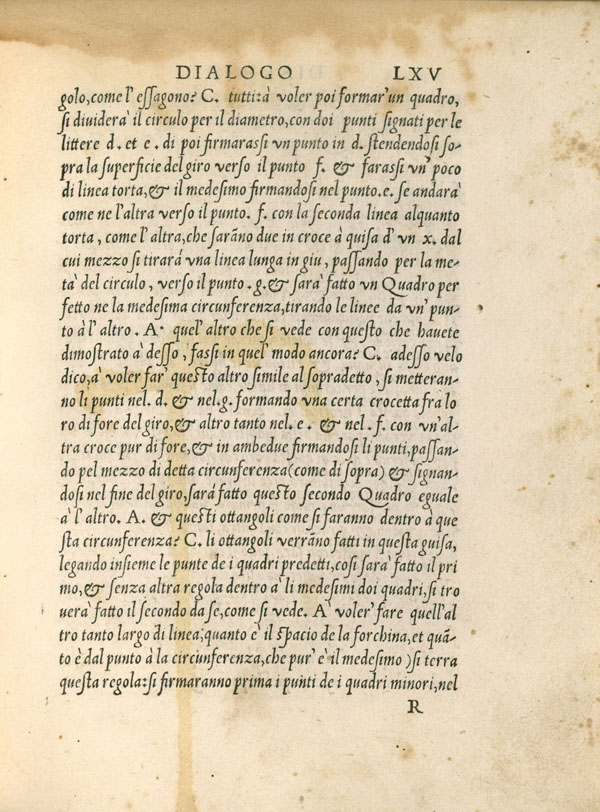 DIALOGO LXV
golo, come l'essagono? C. tuttizà voler poi formar'un quadro,
si diuiderà il circulo per il diametro, con doi punti signati per le
littere d. et e. di poi firmarassi vn punto in d. stendendosi so-
pra la superficie del giro verso il punto f. & farassi vn' poco
di linea torta, & il medesimo firmandosi nel punto.e. se andarà
come ne l'altra verso il punto. f. con la seconda linea alquanto
torta, come l'altra, che sarãno due in croce à quisa d' vn x. dal
cui mezzo si tirará vna linea lunga in giu, passando per la me-
tà del circulo, verso il punto .g.& sarà fatto vn Quadro per
fetto ne la medesima circunferenza, tirando le linee da vn' pun-
to à l' altro. A. quel' altro che si vede con questo che hauete
dimostrato à desso, fassi in quel' modo ancora? C. adesso velo
dico, à voler far' questo altro simile al sopradetto, si metteran-
no li punti nel. d. & nel.g. formando vna certa crocetta fra lo
ro di fore del giro, & altro tanto nel. e. & nel .f. con vn'al-
tra croce pur di fore, & in ambedue firmandosi li punti, passan-
do pel mezzo di detta circunferenza (come di sopra) & signan-
dosi nel fine del giro, sará fatto questo secondo Quadro eguale
à l' altro. A. & questi ottangoli come si faranno dentro à que
sta circunferenza? C. li ottangoli verrãno fatti in questa guisa,
legando insieme le punte de i quadri predetti, cosi sarà fatto il pri
mo, & senza altra regola dentro à li medesimi doi quadri, si tro
uerà fatto il secondo da se, come si vede. A' voler' fare quell'al
tro tanto largo di linea; quanto e' il spacio de la forchina, et quã-
to è dal punto à la circunferenza, che pur' è il medesimo )si terra
questa regola: si firmaranno prima i punti de i quadri minori, nel
R